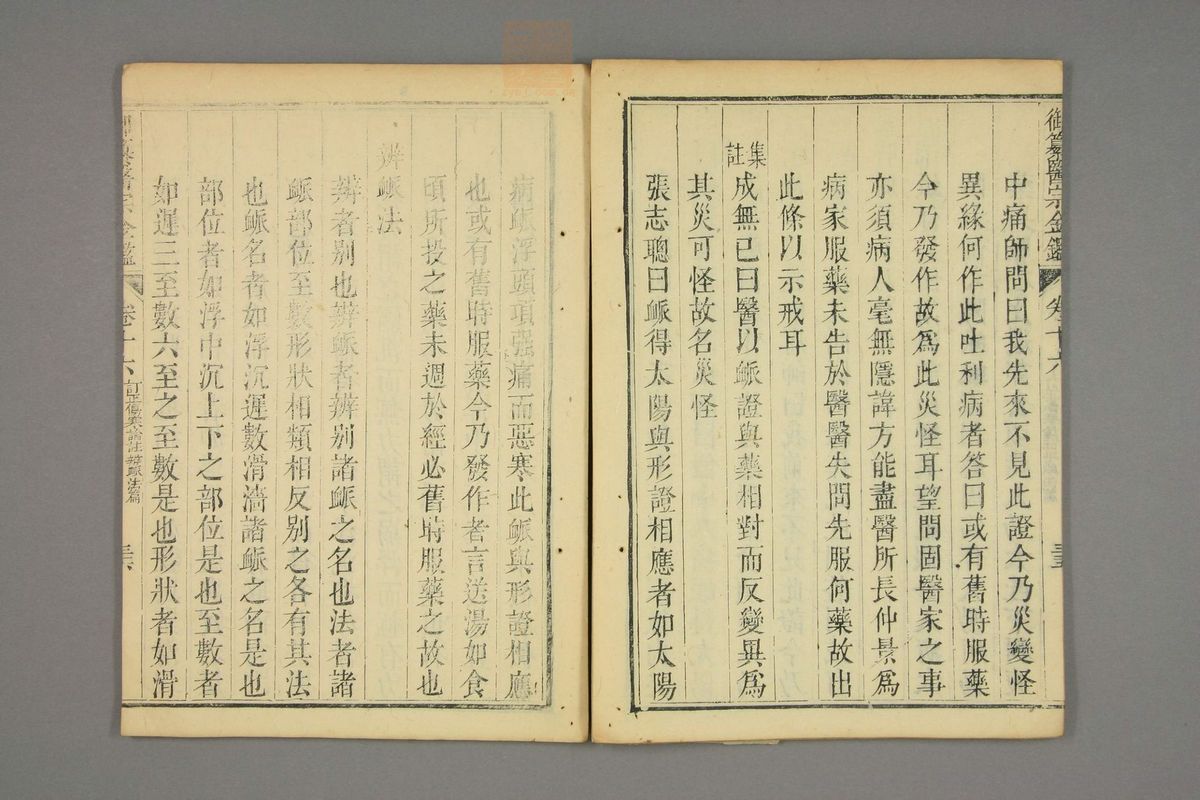 御纂醫宗金鑑 卷十六 三五
中痛師問曰我先來不見此證今乃災變怪
異緣何作此吐利病者答曰或有舊時服藥
今乃發作故爲此災怪耳望問固醫家之事
亦須病人毫無隱諱方能盡醫所長仲景爲
病家服藥未告於醫醫失問先服何藥故出
此條以示戒耳
集註 成無已曰醫以䘑證與藥相對而反變異爲
其災可怪故名災怪
張志聰曰䘑得太陽與形證相應者如太陽
病䘑浮頭項强痛而惡寒此䘑與形證相應
也或有舊時服藥今乃發作者言送湯如食
頃所投之藥未週於經必舊時服藥之故也
辨䘑法
辨者别也辨䘑者辨别諸䘑之名也法者諸
䘑部位至數形狀相類相反别之各有其法
也䘑名者如浮沉遲數滑濇諸䘑之名是也
部位者如浮中沉上下之部位是也至數者
如遲三至數六至之至數是也形狀者如滑
卷十六 訂正傷寒論註 辨䘑法篇 三六